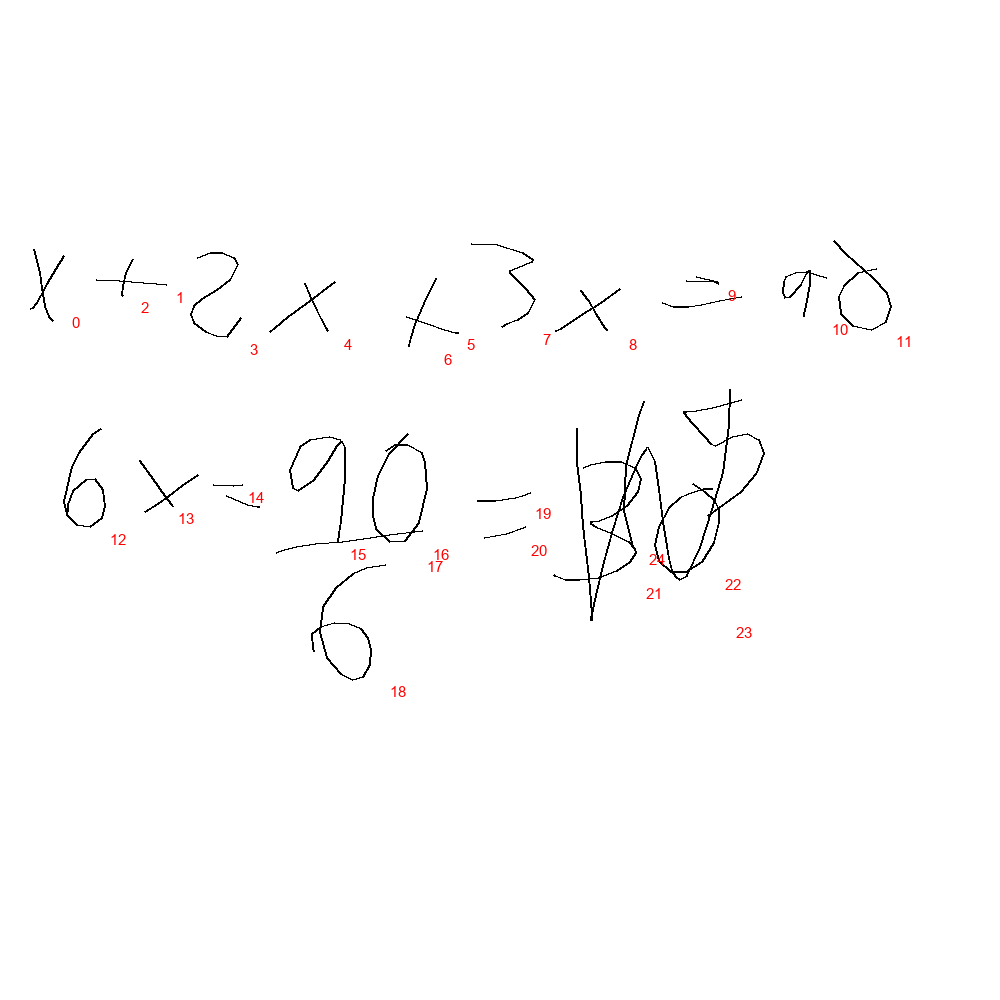 x + 2x + 3x = 90
0 2 1 3 4 6 5 7 8 9 10 11
6x = 90 =
12 13 14 15 16 17 19 20 24 21 22 23
6
18